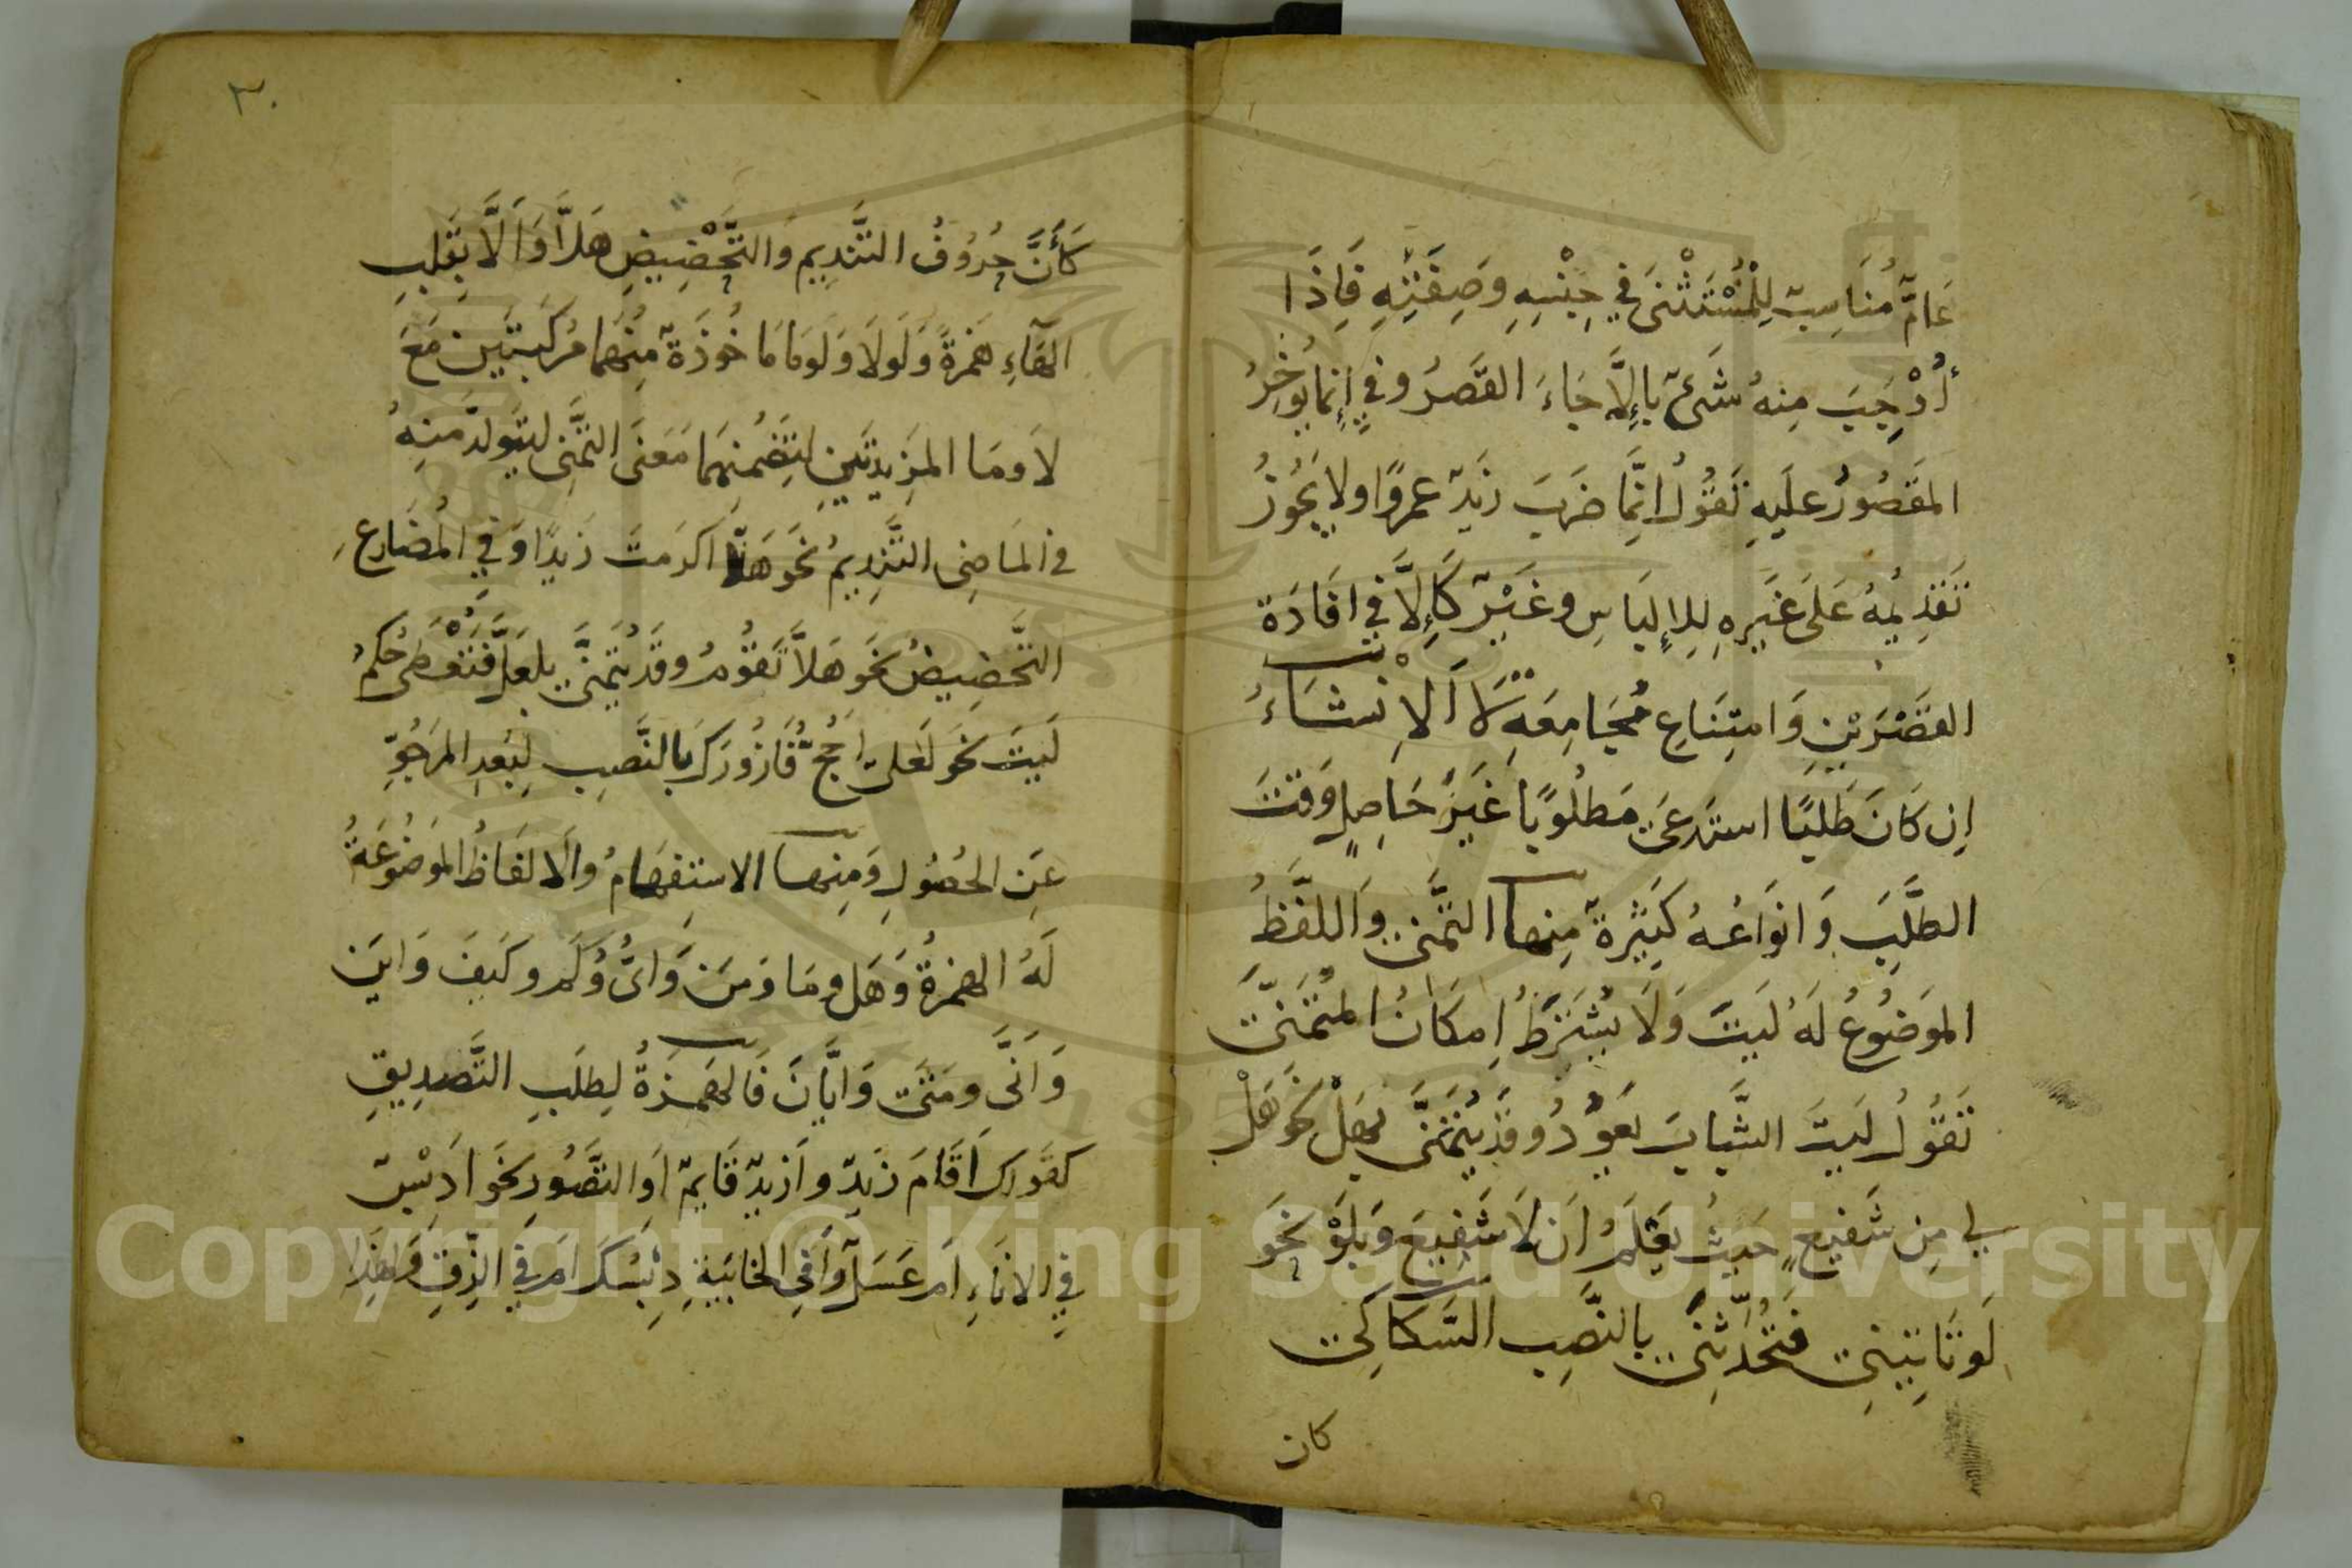 عَامٍّ مُنَاسِبٍ لِلْمُسْتَثْنَى فِي جِنْسِهِ وَصِفَتِهِ فَاِذَا
أُوْجِبَ مِنهُ شَىءٌ بِاِلَّا جَاءَ القَصرُ وفي اِنما يُوخرُ
المَقصُورُ عليهِ تَقُولُ اِنَّمَا ضَرَبَ زَيدٌ عمرًوا ولا يَجُوزُ
تَقدِيمُهُ عَلَى غَيرِهِ لِلاِلبَاسِ وغَيْرٌ كَاِلَّا فِي افَادَة
القَصْرَيْنِ وَامتِنَاعِ مُجَامِعَةِ لَا اَلاِنْشَاءُ
اِن كَانَ طَلَبًا استَدعَى مَطلُوبًا غَيرَ حَاصِلٍ وَقتَ
الطَّلَبِ وَانوَاعُهُ كَثِيرَةٌ مِنها التَّمَنِّي وَاللفَّظُ
المَوضُوعُ لَهُ لَيتَ وَلَا يُشتَرَطُ اِمكَانُ المُتَمَنَّى
تَقُولُ لَيتَ الشَّبَابَ يَعُوْدُ وقَد يُتَمَنَّى بِهَلْ نَحو هَلْ
لي مِن شَفيعٍ حَيثُ يَعلَمُ اَن لَا شَفِيعَ وَبِلَوْ نَحوَ
لَو تَاتِينِي فَتُحَدِّثَنِي بالنَّصبِ السَّكاكِي
كان
٣٠
كَأَنَّ حُرُوفُ التَّندِيمِ وَالتَّحْضِيضِ هَلاَّ وَاَلَّا بِقَلبِ
الهَاءِ هَمزَةً وَلَولَا وَلَومَا مَاخُوذَةٌ مِنهُمَا مُركَّبَتَينِ مَعَ
لَا ومَا المَزِيدَتَينِ لِتَضَمُّنِهِمَا مَعنَى التَّمَنِّي لِيَتَولَّدَ مِنهُ
في المَاضِى التَّندِيمُ نَحوَ هَلَّا اكرَمتَ زَيدًا وَفي المُضَارِعِ
التَّحضِيضُ نَحوَ هَلاَّ تَقُومُ وقَد يُتَمَنَّى بِلَعَلَّ فَتُعْطَى حُكمَ
لَيتَ نَحوَ لَعَلى اَحُجُّ فَازُورَكَ بالنَّصبِ لِبُعدِ المَرجُوِّ
عَنِ الحُصُولِ وَمِنها الاستِفهَامُ والَالفَاظُ المَوضُوعَةُ
لَهُ الهمزَةُ وَهَل ومَا ومَن وَاىُّ وَكَم وكَيفَ وَاينَ
وَاَنَّى ومَتَى وَايَّانَ فَالهَمزَةُ لِطَلَبِ التَّصدِيقِ
كقَولِكَ اَقَامَ زَيدٌ واَزَيدٌ قَايمٌ اَو التَّصَوُرِ نَحوَ اَدِبْسٌ
فِي الانَاءِ اَم عَسَلٌ وَاَفي الخَابِيَةِ دِبسُكَ اَم في الزِّقِّ وَلِهَذَا